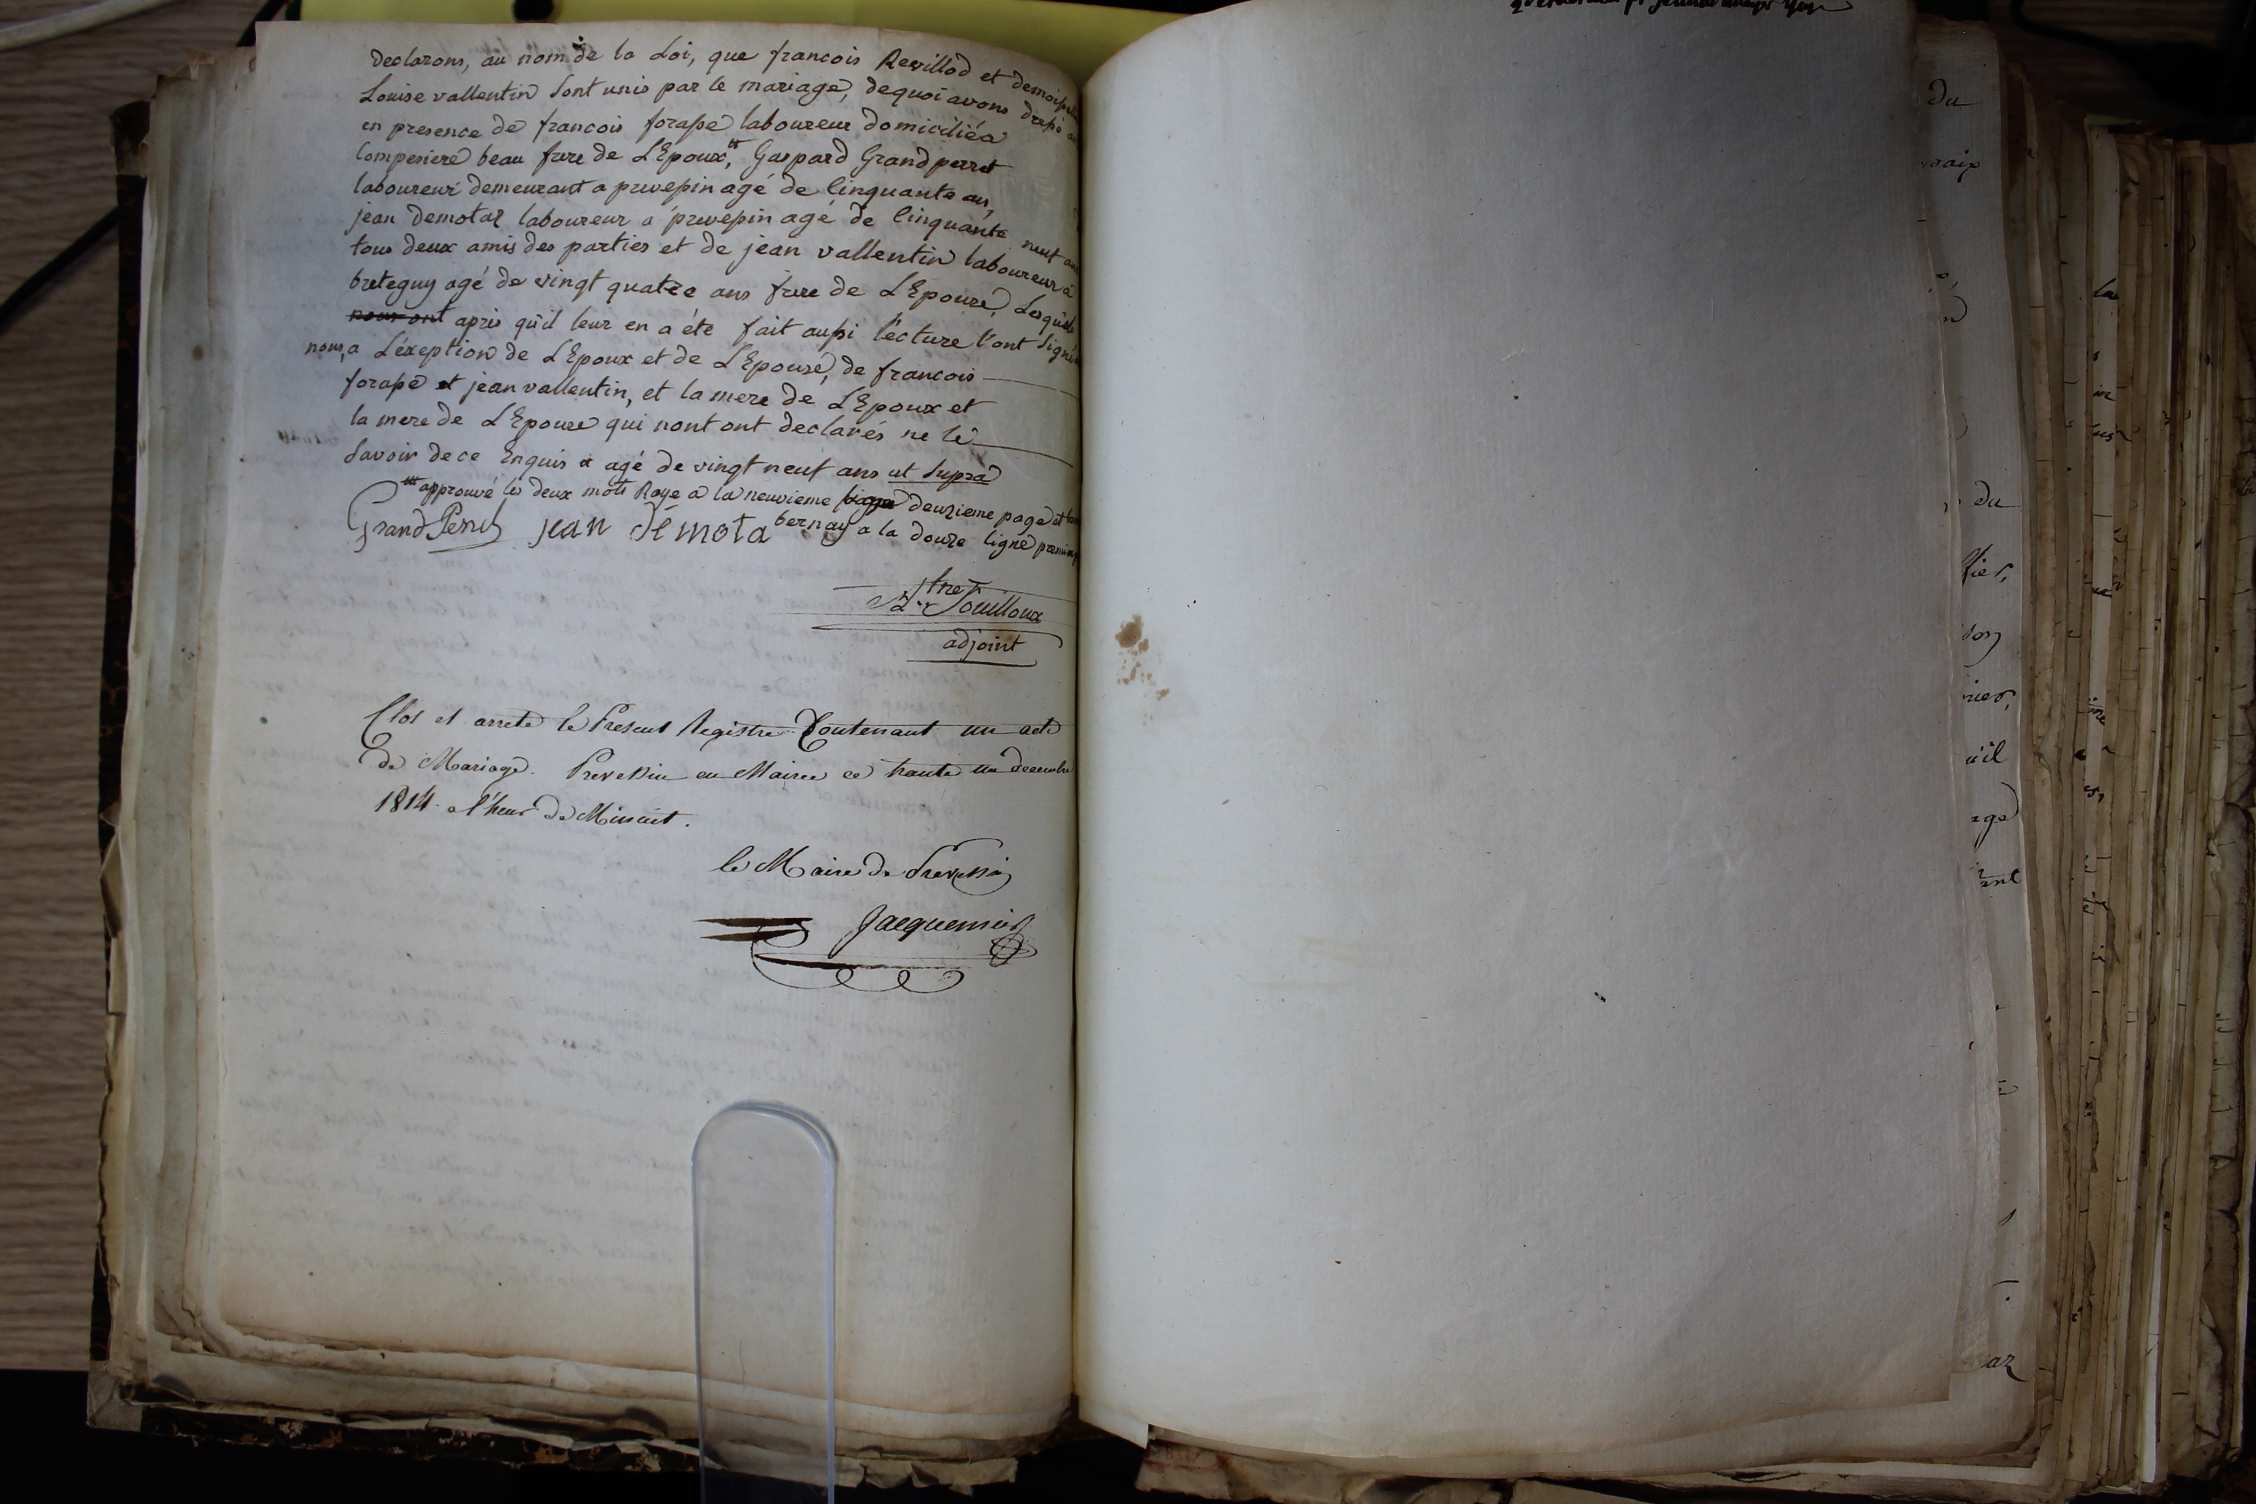 declarons, au nom de la Loi, que francois Revillod et demoiselle
Louise vallentin sont unis par le mariage, dequoi avons dressé
en presence de francois forasse laboureur domicilié a
Compesiere beau frere de L'Epoux, Gaspard Grandperret
laboureur demeurant a prevessin agé de Cinquante ans,
jean demotaz laboureur a prevessin agé de Cinquante neuf ans
tous deux amis des parties et de jean vallentin laboureur a
breteguy agé de vingt quatre ans frere de L'Epouse, Lesquels
nous ont apris qu'il leur en a éte fait aussi lecture l'ont signé
nous, a L'éxeption de L'Epoux et de L'Epouse, de francois
forasse et jean vallentin, et la mere de L'Epoux et
la mere de L'Epouse qui nont ont declarés ne le
savoir de ce Enquis agé de vingt neuf ans ut supra
approuvé les deux mots Raye a la neuvieme deuzieme page et
bernay a la douze ligne
GrandPerret jean démota
Fouilloux
adjoint
Clos et arreté le Present Registre Contenant un acte
de Mariage. Prevessin en Mairie ce trente un decembre
1814 a l'heur de Minuit.
le Maire de Prevessin
Jacquemier
du
du
adjoint